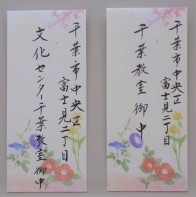 千葉市中央区
富士見二丁目
文化センター千葉教室御中
千葉市中央区
富士見二丁目
千葉教室御中